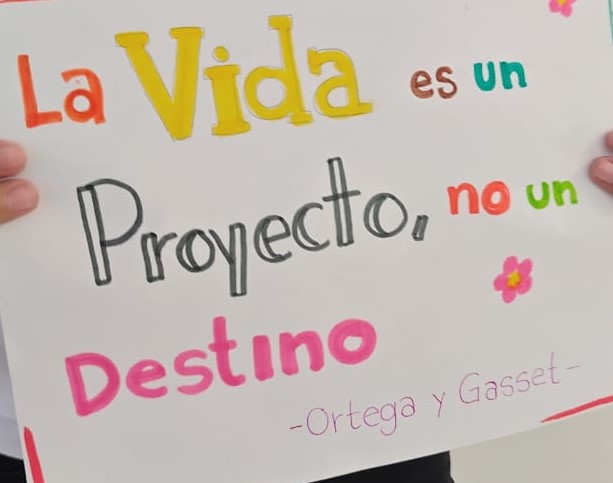 La Vida es un
Proyecto, no un
Destino
-Ortega y Gasset-